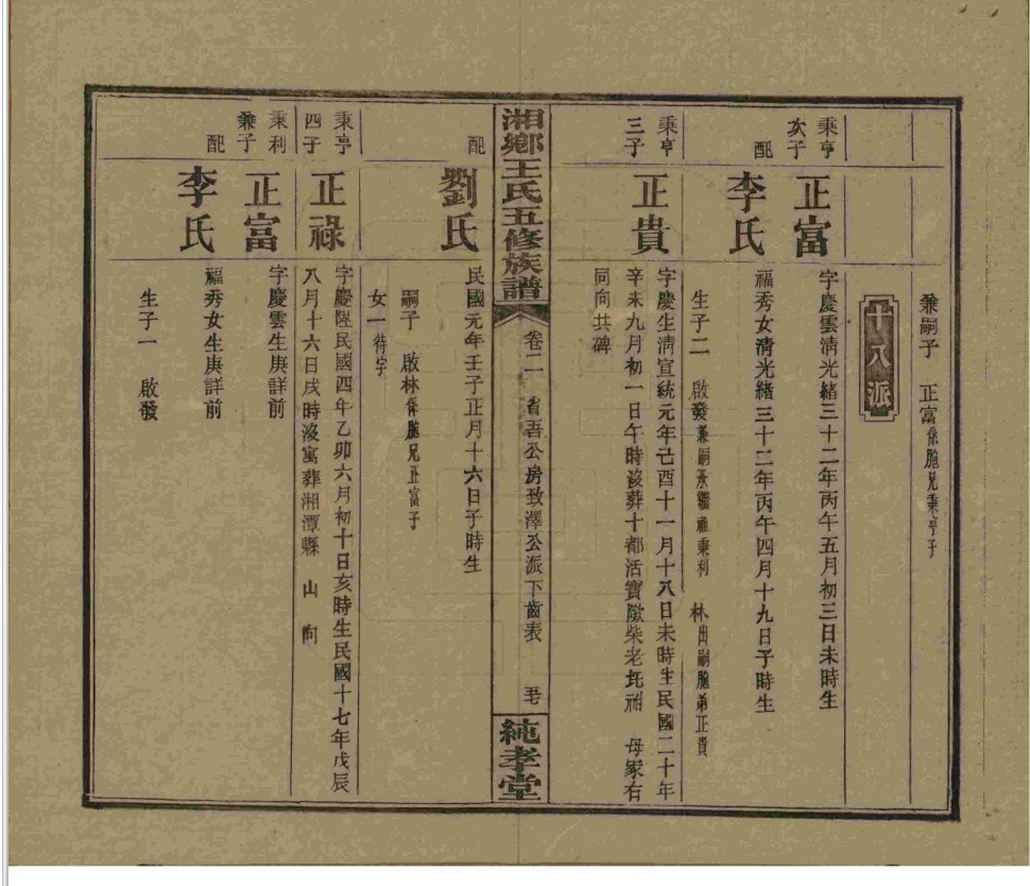 兼嗣子　正富係胞兄秉亨子
十八派
秉亨
次子
正富
字慶雲清光緒三十二年丙午五月初三日未時生
配
李氏
福秀女清光緒三十二年丙午四月十九日子時生
生子二　啟發兼嗣承繼雍秉利　林出嗣胞弟正貴
秉亨
三子
正貴
字慶生清宣統元年己酉十一月十八日未時生民國二十年
辛未九月初一日午時沒葬十都活寶歐柴老坵祔　母冢右
同向共碑
湘鄉王氏五修族譜
卷二　省吾公房致澤公派下齒表
純孝堂
配
劉氏
民國元年壬子正月十六日子時生
嗣子　啟林係胞兄正富子
女一待字
秉亨
四子
正祿
字慶陞民國四年乙卯六月初十日亥時生民國十七年戊辰
八月十六日戌時沒寓葬湘潭縣　山　向
秉利
兼子
正富
字慶雲生庚詳前
配
李氏
福秀女生庚詳前
生子一　啟發